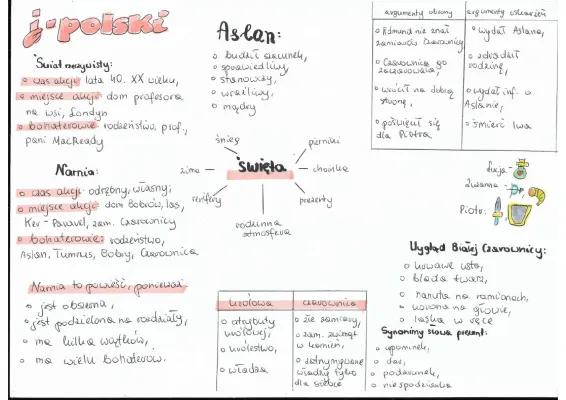 j. polski
Świat rzeczywisty:
o czas akcji: lata 40. XX wieku,
o miejsce akcji: dom profesora
na wsi, Londyn
o bohaterowie: rodzeństwo, prof.,
pani MacReady
Narnia:
o czas akcji: odrębny, własny;
o miejsce akcji: dom Bobrów, las,
Ker-Paravel, zam. Czarownicy
o bohaterowie: rodzeństwo,
Aslan, Tumnus, Bobry, Czarownica
Narnia to powieść, ponieważ
o jest obszerna,
o jest podzielona na rozdziały,
o ma kilka wątków,
o ma wielu bohaterów.
Aslan:
o budził szacunek,
o sprawiedliwy,
o stanowczy,
o wrażliwy,
o mądry
śnieg
pierniki
zima
święta
choinka
renifery
prezenty
rodzinna
atmosfera
królowa
czarownica
o atrybuty
królowej,
o królestwo,
o władza
o złe zamiary,
o zam. zwierząt
w kamień,
władzy tylko
dla siebie
argumenty obrony
argumenty oskarżeń
o Edmund nie znał
zamiarów Czarownicy
o Czarownica go
zaczarowała,
o wrócił na dobrą
stronę,
o poświęcił się
dla Piotra
o wydał Aslana,
o zdradził
rodzinę,
o wydał inf. o
Aslanie,
o śmierć lwa
Łucja:
Zuzanna:
Piotr:
Wygląd Białej Czarownicy:
o krwawe usta,
o blada twarz,
o narzuta na ramionach,
o korona na głowie,
o laska w ręce
Synonimy słowa prezent:
o upominek,
o dar,
o podarunek,
o niespodzianka